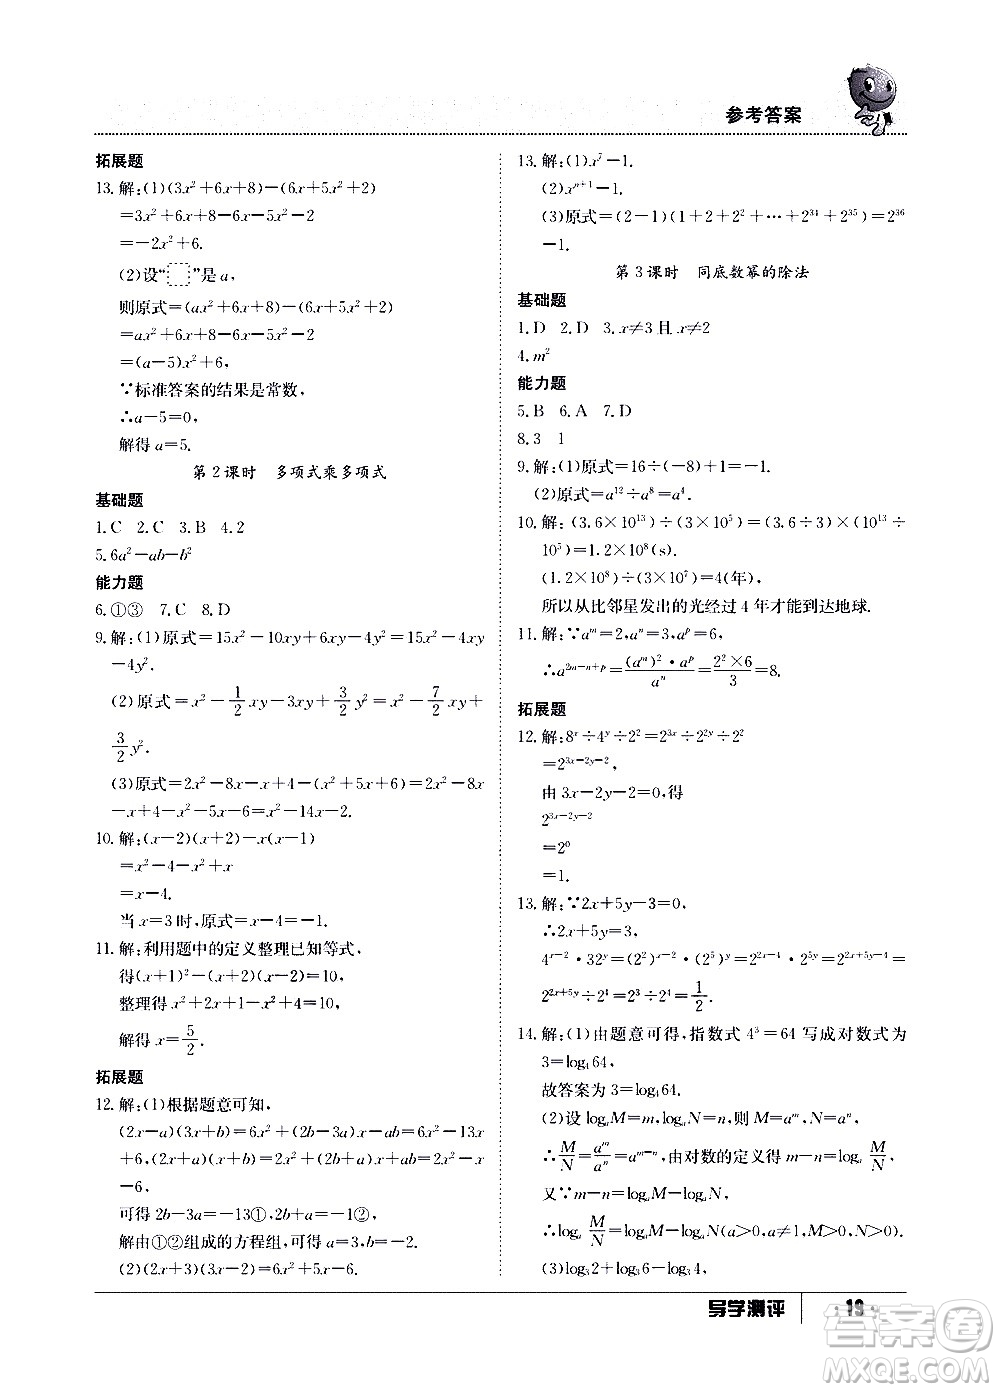 参考答案
拓展题
13. 解:(1)(3x²+6x+8)-(6x+5x²+2)
=3x²+6x+8-6x-5x²-2
=-2x²+6.
(2)设“ ”是a,
则原式=(ax²+6x+8)-(6x+5x²+2)
=ax²+6x+8-6x-5x²-2
=(a-5)x²+6,
∵标准答案的结果是常数,
∴a-5=0,
解得a=5.
第2课时 多项式乘多项式
基础题
1. C 2. C 3. B 4. 2
5. 6a²-ab-b²
能力题
6. ①③ 7. C 8. D
9. 解:(1)原式=15x²-10xy+6xy-4y²=15x²-4xy
-4y².
(2)原式=x²-1/2xy-3xy+3/2y²=x²-7/2xy+
3/2y².
(3)原式=2x²-8x-x+4-(x²+5x+4)=2x²-8x
-x+4-x²-5x-4=x²-14x.
10. 解:(x-2)(x+2)-x(x-1)
=x²-4-x²+x
=x-4.
当x=3时,原式=x-4=-1.
11. 解:利用题中的定义整理已知等式,
得(x+1)²-(x-2)(x+2)=10,
整理得x²+2x+1-x²+4=10,
解得x=5/2.
拓展题
12. 解:(1)根据题意可知,
(2x-a)(3x+b)=6x²+(2b-3a)x-ab=6x²-13x
+6,(2x+a)(x+b)=2x²+(a+2b)x+ab=2x²-x
-6,
可得2b-3a=-13①,a+2b=-1②,
解由①②组成的方程组,可得a=3,b=-2.
(2)(2x+3)(3x-2)=6x²+5x-6.
13. 解:(1)x⁷-1.
(2)xⁿ⁺¹-1.
(3)原式=(2-1)(1+2+2²+…+2³⁴+2³⁵)=2³⁶
-1.
第3课时 同底数幂的除法
基础题
1. D 2. D 3. x≠3且x≠2
4. m²
能力题
5. B 6. A 7. D
8. 3 1
9. 解:(1)原式=16÷(-8)+1=-1.
(2)原式=a¹²÷a⁸=a⁴.
10. 解:(3.6×10¹³)÷(3×10⁵)=(3.6÷3)×(10¹³÷
10⁵)=1.2×10⁸(s).
(1.2×10⁸)÷(3×10⁷)=4(年),
所以从比邻星发出的光经过4年才能到达地球.
11. 解:∵aᵐ=2,aⁿ=3,aᵖ=6,
∴a²ᵐ⁻ⁿ⁺ᵖ=(aᵐ)²·aᵖ/aⁿ=2²×6/3=8.
拓展题
12. 解:8ˣ÷4ʸ÷2²=2³ˣ÷2²ʸ÷2²
=2³ˣ⁻²ʸ⁻²
由3x-2y-2=0,得
2³ˣ⁻²ʸ⁻²
=2⁰
=1.
13. 解:∵2x+5y-3=0,
∴2x+5y=3,
4ˣ⁻²·32ʸ=(2²)ˣ⁻²·(2⁵)ʸ=2²ˣ⁻⁴·2⁵ʸ=
2²ˣ⁺⁵ʸ÷2⁴=2³÷2⁴=1/2.
14. 解:(1)由题意可得,指数式4³=64写成对数式为
3=log₄64,
故答案为3=log₄64.
(2)设logₐM=m,logₐN=n,则M=aᵐ,N=aⁿ,
∴M/N=aᵐ/aⁿ=aᵐ⁻ⁿ,由对数的定义得m-n=logₐM/N
又∵m-n=logₐM-logₐN,
∴logₐM/N=logₐM-logₐN(a>0,a≠1,M>0,N>0).
(3)log₃2+log₃6-log₃4,
导学测评 19
答案圈
MXQE.COM